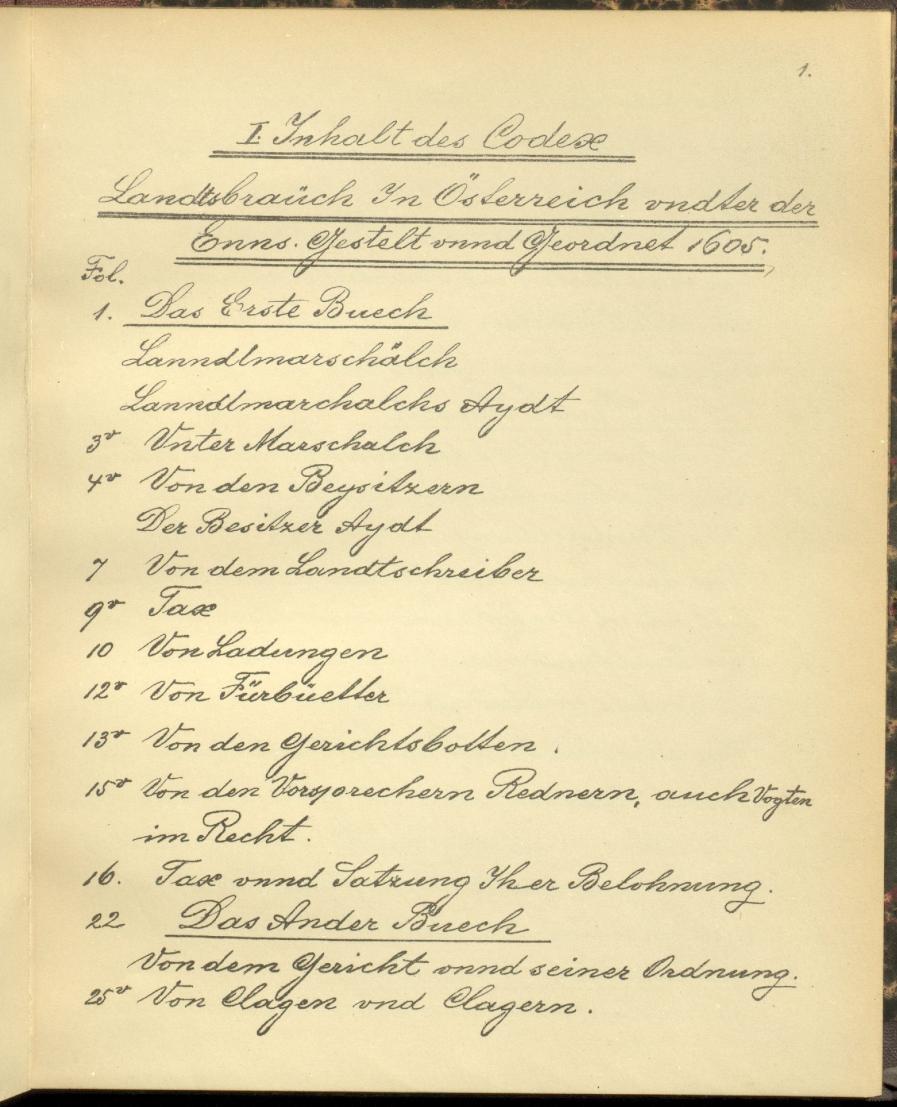 1.
I. Inhalt des Codex
Landtsbraüch In Österreich vndter der
Enns. Gestelt vnnd Geordnet 1605.
Fol.
1. Das Erste Buech
Lanndtmarschälch
Lanndtmarchalchs Aydt
3v Vnter Marschalch
4v Von den Beysitzern
Der Besitzer Aydt
7 Von dem Landtschreiber
9v Tax
10 Von Ladungen
12v Von Fürbüetter
13v Von den Gerichtsbotten.
15v Von den Vorsprechern Rednern, auch Vogten
im Recht.
16. Tax vnnd Satzung Iher Belohnung.
22 Das Ander Buech
Von dem Gericht vnnd seiner Ordnung.
25v Von Clagen vnd Clagern.